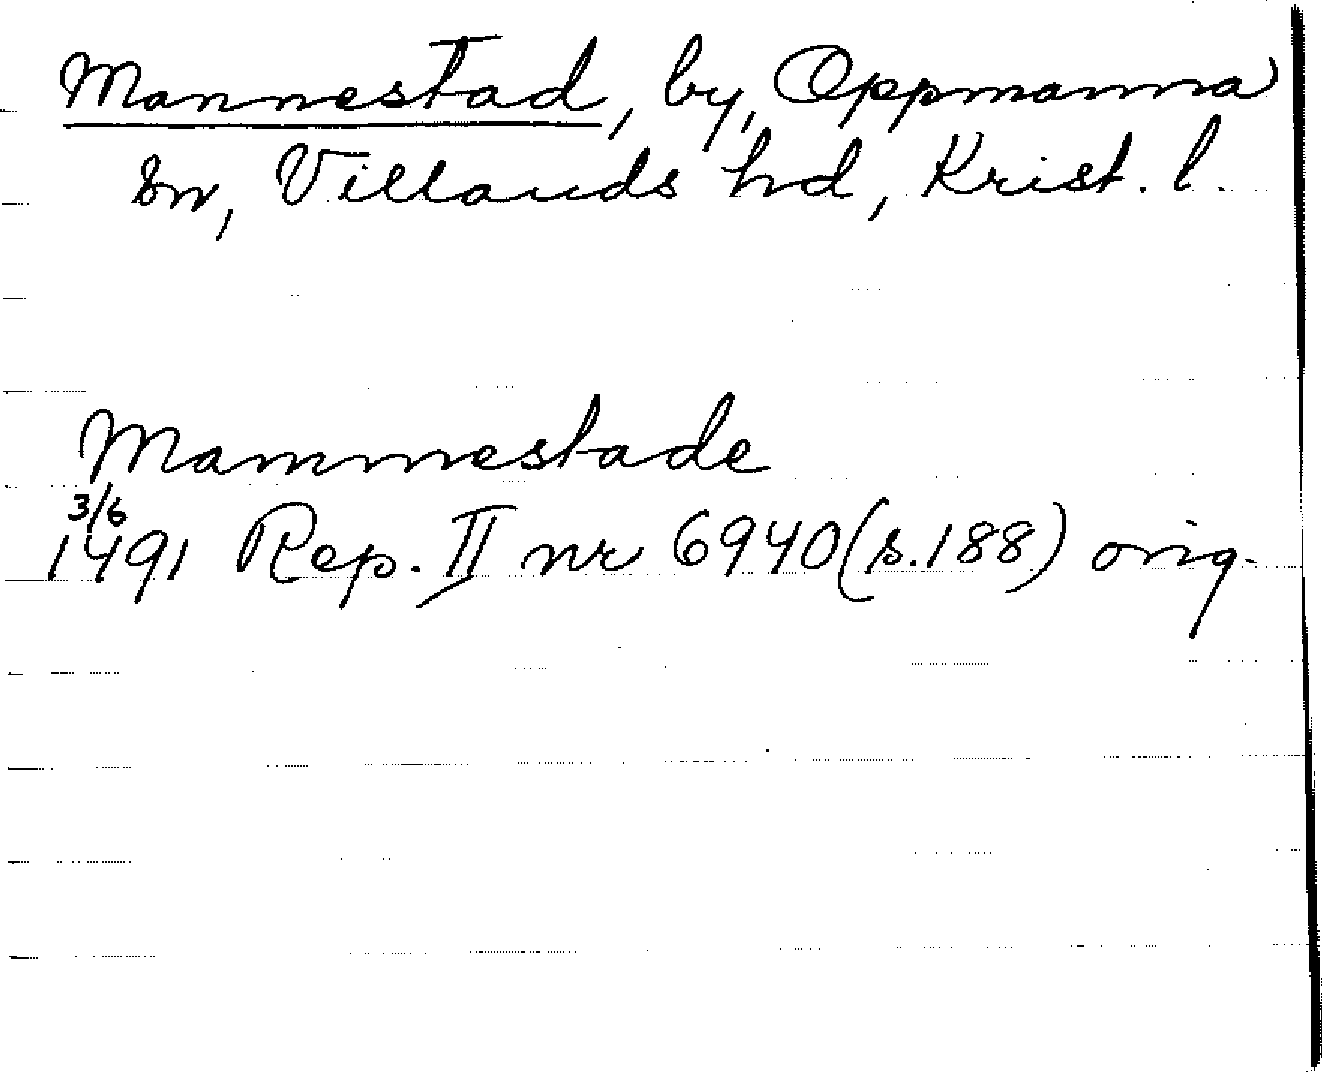 Mannestad, by, Oppmanna
sn, Villands hd, Krist. l.
Mammestade
3/6
1491 Rep. II nr 6940 (s. 188) orig.